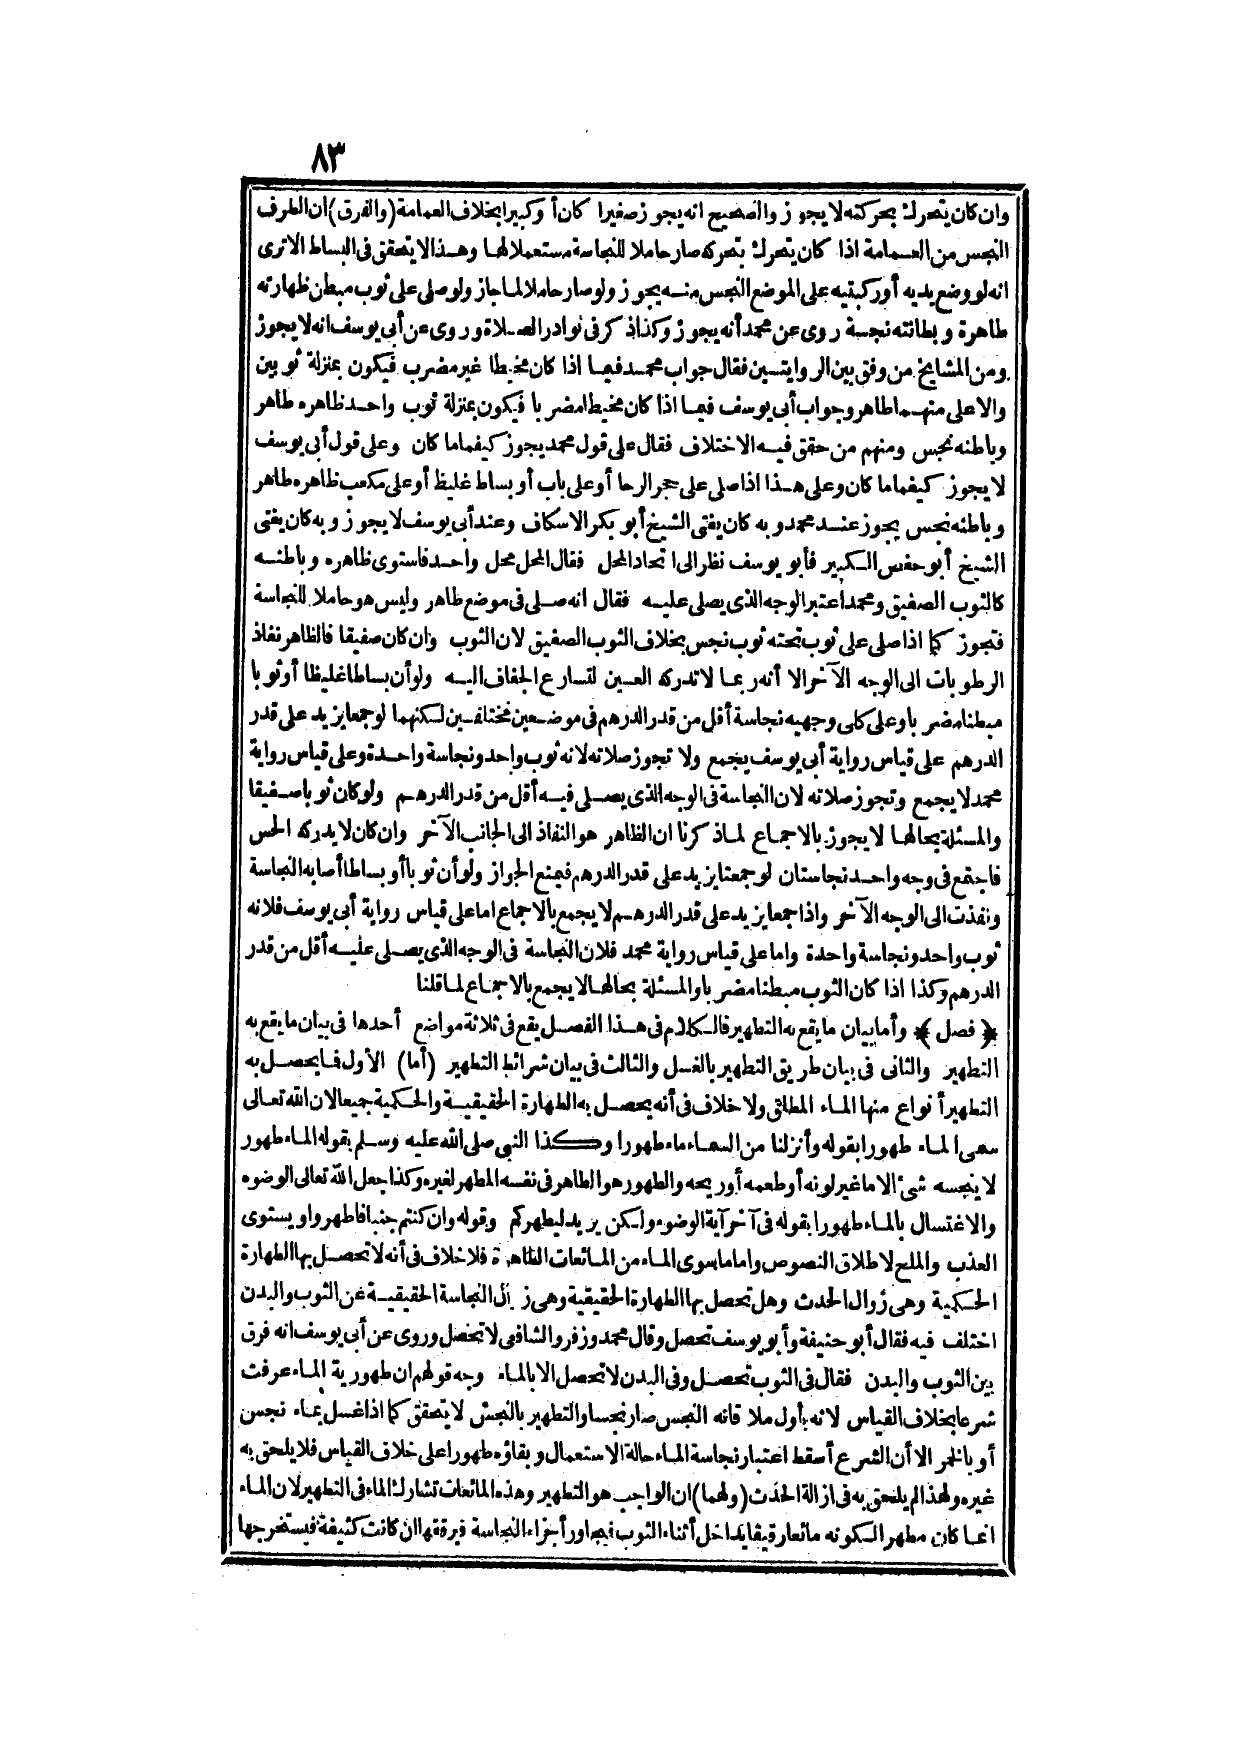 ٨٣
وان كان يتحرك بحركته لا يجوز والصحيح انه يجوز صغيرا كان أو كبيرا بخلاف العمامة (والفرق) ان الطرف
النجس من العمامة اذا كان يتحرك بتحركه صار حاملا للنجاسة مستعملا لها وهذا لا يتحقق فى البساط الا ترى
انه لو وضع يديه أو ركبتيه على الموضع النجس منه يجوز ولو صار حاملا لما جاز ولو صلى على ثوب مبطن ظهارته
طاهرة و بطانته نجسة روى عن محمد أنه يجوز وكذا ذكر فى نوادر الصلاة و روى عن أبى يوسف انه لا يجوز
ومن المشايخ من وفق بين الروايتين فقال جواب محمد فيما اذا كان مخيطا غير مضرب فيكون بمنزلة ثوبين
والاعلى منهما طاهر وجواب أبى يوسف فيما اذا كان مخيطا مضربا فيكون بمنزلة ثوب واحد ظاهره طاهر
وباطنه نجس ومنهم من حقق فيه الاختلاف فقال على قول محمد يجوز كيفما ما كان وعلى قول أبى يوسف
لا يجوز كيفما ما كان وعلى هذا اذا صلى على حجر الرحا أو على باب أو بساط غليظ أو على مكعب ظاهره طاهر
و باطنه نجس يجوز عند محمد و به كان يفتى الشيخ أبو بكر الاسكاف وعند أبى يوسف لا يجوز و به كان يفتى
الشيخ أبو حفص الكبير فأبو يوسف نظر الى اتحاد المحل فقال المحل محل واحد فاستوى ظاهره و باطنه
كالثوب الصفيق ومحمد اعتبر الوجه الذى يصلى عليه فقال انه صلى فى موضع طاهر وليس هو حاملا للنجاسة
فتجوز كما اذا صلى على ثوب تحته ثوب نجس بخلاف الثوب الصفيق لان الثوب وان كان صفيقا فالظاهر نفاذ
الرطوبات الى الوجه الآخر الا أنه ربما لا تدركه العين لتسارع الجفاف اليه ولو أن بساطا غليظا أو ثوبا
مبطنا مضربا وعلى كلى وجهيه نجاسة أقل من قدر الدرهم فى موضعين مختلفين لكنهما لو جمعا يزيد على قدر
الدرهم على قياس رواية أبى يوسف يجمع ولا تجوز صلاته لانه ثوب واحد ونجاسة واحدة وعلى قياس رواية
محمد لا يجمع وتجوز صلاته لان النجاسة فى الوجه الذى يصلى فيه أقل من قدر الدرهم ولو كان ثوبا صفيقا
والمسئلة بحالها لا يجوز بالاجماع لما ذكرنا ان الظاهر هو النفاذ الى الجانب الآخر وان كان لا يدركه الحس
فاجتمع فى وجه واحد نجاستان لو جمعتا يزيد على قدر الدرهم فيمنع الجواز ولو أن ثوبا أو بساطا أصابه النجاسة
ونفذت الى الوجه الآخر واذا جمعا يزيد على قدر الدرهم لا يجمع بالاجماع اما على قياس رواية أبى يوسف فلانه
ثوب واحد ونجاسة واحدة واما على قياس رواية محمد فلان النجاسة فى الوجه الذى يصلى عليه أقل من قدر
الدرهم وكذا اذا كان الثوب مبطنا مضربا والمسئلة بحالها لا يجمع بالاجماع لما قلنا
﴿ فصل ﴾ وأما بيان ما يقع به التطهير فالكلام فى هذا الفصل يقع فى ثلاثة مواضع أحدها فى بيان ما يقع به
التطهير والثانى فى بيان طريق التطهير بالغسل والثالث فى بيان شرائط التطهير (أما) الأول فما يحصل به
التطهير أنواع منها الماء المطلق ولا خلاف فى أنه يحصل به الطهارة الحقيقية والحكمية جميعا لان الله تعالى
سمى الماء طهورا بقوله وأنزلنا من السماء ماء طهورا وكذا النبى صلى الله عليه وسلم بقوله الماء طهور
لا ينجسه شئ الا ما غير لونه أو طعمه أو ريحه والطهور هو الطاهر فى نفسه المطهر لغيره وكذا جعل الله تعالى الوضوء
والاغتسال بالماء طهورا بقوله فى آخر آية الوضوء ولكن يريد ليطهركم وقوله وان كنتم جنبا فاطهروا ويستوى
العذب والملح لاطلاق النصوص واما ما سوى الماء من المائعات الطاهرة فلا خلاف فى أنه لا تحصل بها الطهارة
الحكمية وهى زوال الحدث وهل تحصل بها الطهارة الحقيقية وهى زوال النجاسة الحقيقية عن الثوب والبدن
اختلف فيه فقال أبو حنيفة وأبو يوسف تحصل وقال محمد وزفر والشافعى لا تحصل وروى عن أبى يوسف انه فرق
بين الثوب والبدن فقال فى الثوب تحصل وفى البدن لا تحصل الا بالماء وجه قولهم ان طهورية الماء عرفت
شرعا بخلاف القياس لانه بأول ملاقاته النجس صار نجسا والتطهير بالنجس لا يتحقق كما اذا غسل بماء نجس
أو بالخمر الا أن الشرع أسقط اعتبار نجاسة الماء حالة الاستعمال وبقاؤه طهورا على خلاف القياس فلا يلحق به
غيره ولهذا لم يلحق به فى ازالة الحدث (ولهما) ان الواجب هو التطهير وهذه المائعات تشارك الماء فى التطهير لان الماء
انما كان مطهرا لكونه مائعا رقيقا يداخل أثناء الثوب فيجاور أجزاء النجاسة فيرققها ان كانت كثيفة فيستخرجها